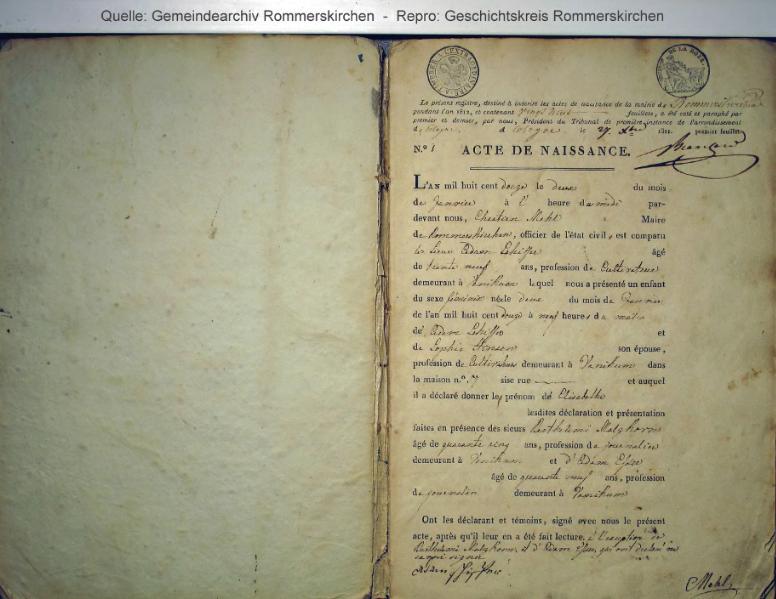 Quelle: Gemeindearchiv Rommerskirchen - Repro: Geschichtskreis Rommerskirchen
Le présent registre, destiné à inscrire les actes de naissance de la mairie de Rommerskirchen
pendant l'an 1812, et contenant vingt huit feuillets, a été coté et paraphé par
premier et dernier, par nous, Président du Tribunal de première instance de l'arrondissement
de Cologne, à Cologne le 27. Xbre 1811. premier feuillet
N.º 1 ACTE DE NAISSANCE.
L'AN mil huit cent douze le deux du mois
de Janvier à heure du midi par-
devant nous, Chretien Mehl Maire
de Rommerskirchen, officier de l'état civil, est comparu
le sieur Adam âgé
de trente neuf ans, profession de Cultivateur
demeurant à Vanikum lequel nous a présenté un enfant
du sexe féminin né le deux du mois de Janvier
de l'an mil huit cent douze à neuf heures du matin
de Adam et
de Sophie son épouse,
profession de Cultivateur demeurant à Vanikum dans
la maison n.º 7 sise rue et auquel
il a déclaré donner les prénom de Elisabethe
lesdites déclaration et présentation
faites en présence des sieurs Barthelemi Malzkorn
âgé de quarante cinq ans, profession de journalier
demeurant à Vanikum et d'Adam Esser
âgé de quarante neuf ans, profession
de journalier demeurant à Vanikum
Ont les déclarant et témoins, signé avec nous le présent
acte, après qu'il leur en a été fait lecture, à l'exception de
Barthelemi Malzkorn et d'Adam Esser, qui ont déclaré ne
savoir signer
Adam
Mehl